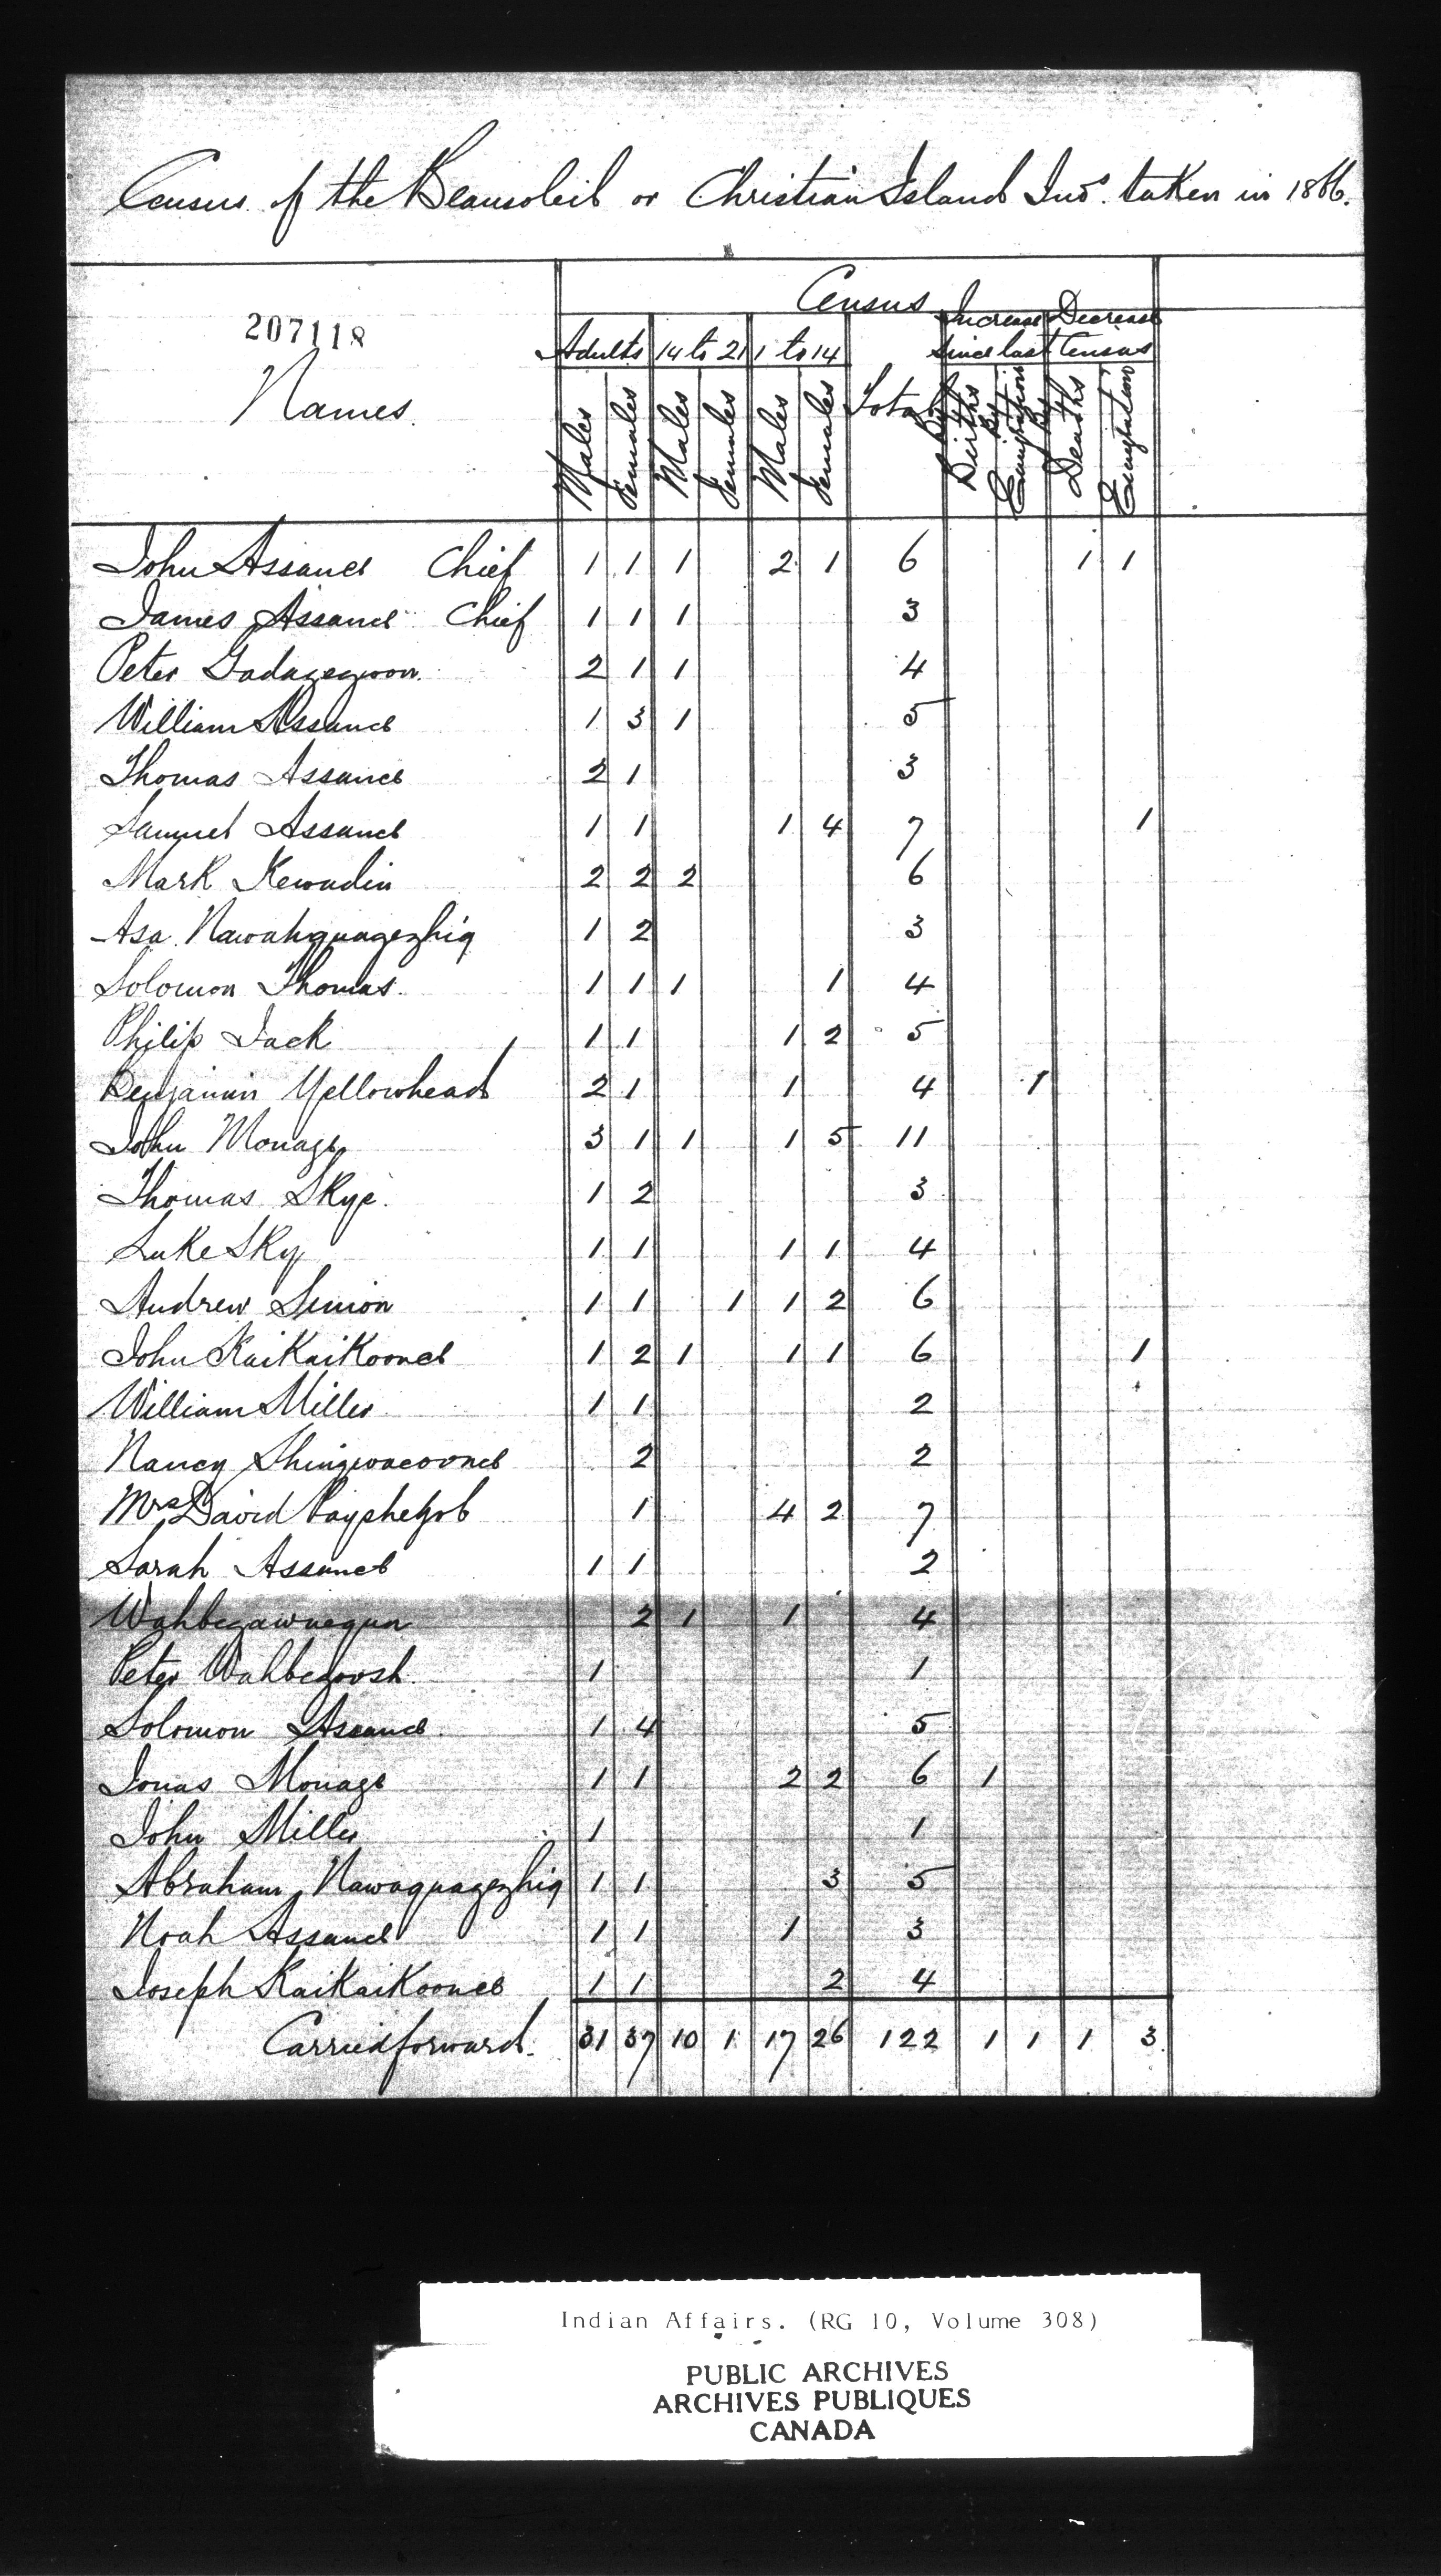 Census of the Beausoleil or Christian Island Inds. taken in 1866.
Census
207118
Increase Decrease
Adults 14 to 21 1 to 14 since last Census
Names. Males Females Males Females Males Females Total By Births By Emigration By Deaths Emigration
John Assance Chief 1 1 1 2 1 6 1 1
James Assance Chief 1 1 1 3
Peter Gadagegwon 2 1 1 4
William Assance 1 3 1 5
Thomas Assance 2 1 3
Samuel Assance 1 1 1 4 7 1
Mark Kewadin 2 2 2 6
Asa Nawahquagezhig 1 2 3
Solomon Thomas. 1 1 1 1 4
Philip Jack 1 1 1 2 5
Benjamin Yellowhead 2 1 1 4 1
John Monage 3 1 1 1 5 11
Thomas Skye. 1 2 3
Luke Sky 1 1 1 1 4
Andrew Simon 1 1 1 1 2 6
John KaiKaiKoonce 1 2 1 1 1 6 1
William Miller 1 1 2
Nancy Shingwacoonce 2 2
Mrs David Payshekob 1 4 2 7
Sarah Assance 1 1 2
Wahbegawnequa 2 1 1 4
Peter Wahbegoosh. 1 1
Solomon Assance. 1 4 5
Jonas Monage 1 1 2 2 6 1
John Miller 1 1
Abraham Nawaquagezhig 1 1 3 5
Noah Assance 1 1 1 3
Joseph KaiKaiKoonce 1 1 2 4
Carried forward. 31 37 10 1 17 26 122 1 1 1 3
Indian Affairs. (RG 10, Volume 308)
PUBLIC ARCHIVES
ARCHIVES PUBLIQUES
CANADA